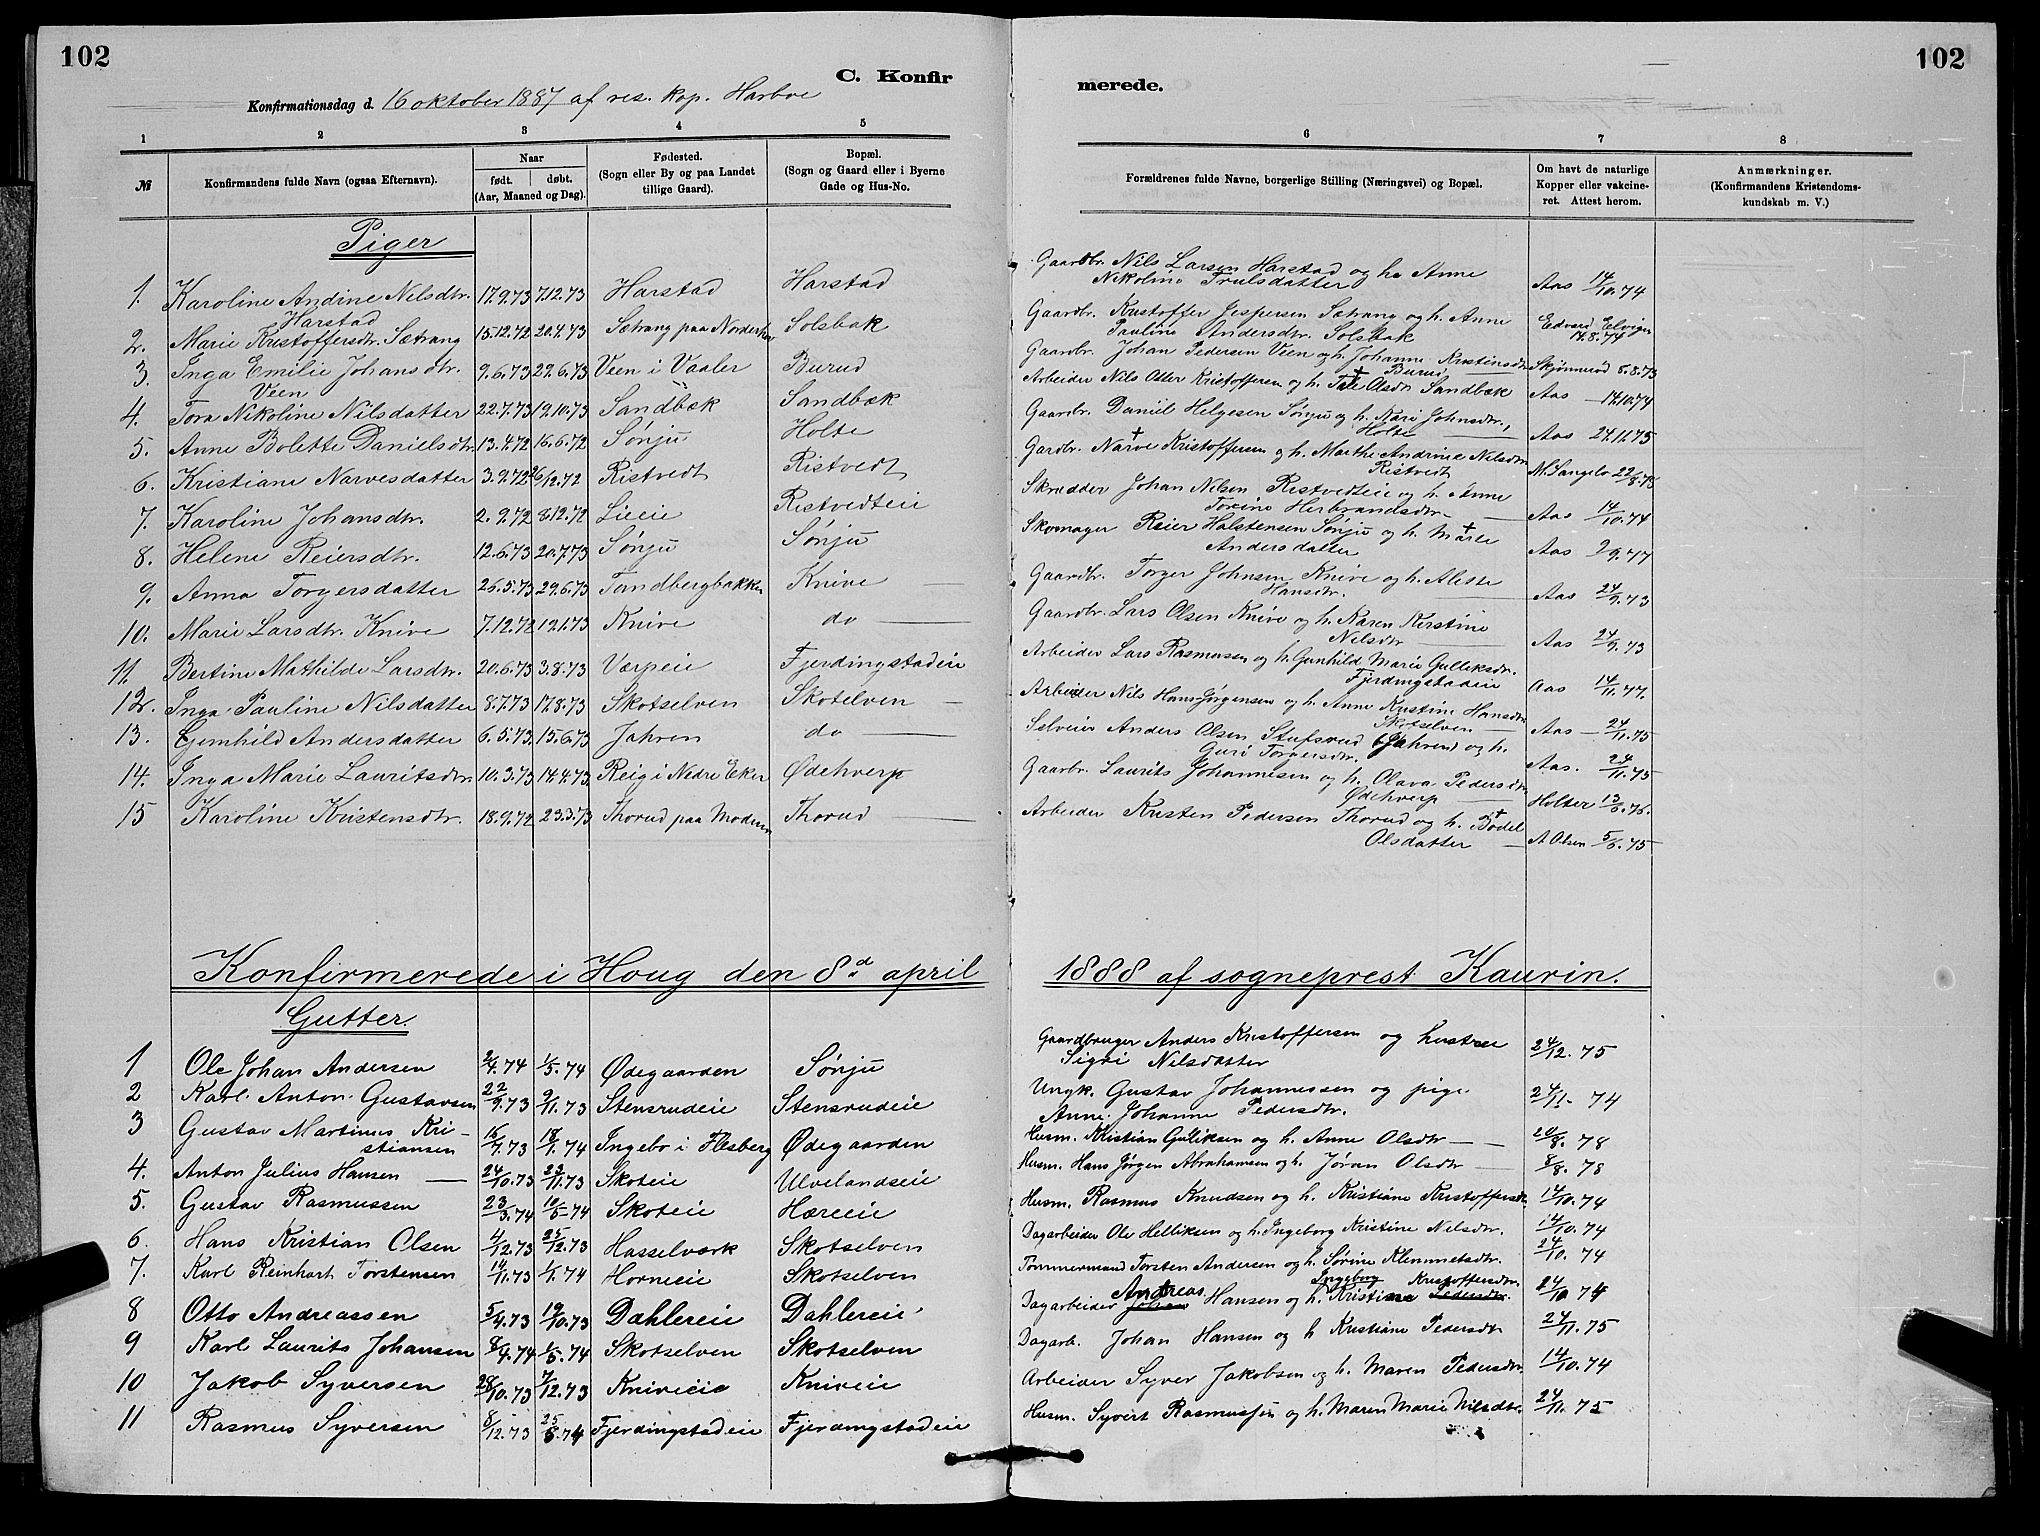 102
C. Konfir
Konfirmationsdag d. 16 oktober 1887 af res. kap. Harboe
1 2 3 4 5
№ Konfirmandens fulde Navn (ogsaa Efternavn). Naar født. døbt. (Aar, Maaned og Dag). Fødested. (Sogn eller By og paa Landet tillige Gaard). Bopæl. (Sogn og Gaard eller i Byerne Gade og Hus-No.
Piger
1. Karoline Andine Nilsdtr. 17.9.73 7.12.73 Harstad Harstad
Harstad
2. Marie Kristoffersdtr. Sætrang 15.12.72 20.4.73 Sætrang paa Solsbak
3. Inga Emilie Johansdtr. 9.6.73 29.6.73 Veen i Vaaler Burud
Veen
4. Tora Nikoline Nilsdatter 22.7.73 19.10.73 Sandbæk Sandbæk
5. Anne Bolette Danielsdtr. 13.4.72 16.6.72 Sønju Holte
6. Kristiane Narvesdatter 3.9.72 26/12.72 Ristvedt Ristvedt
7. Karoline Johansdtr. 2.9.72 8.12.72 Lieeie Ristvedteie
8. Helene Reiersdtr. 12.6.73 20.7.73 Sønju Sønju
9. Anna Torgersdatter 26.5.73 29.6.73 Tandbergbakken Knive
10. Marie Larsdtr. Knive 7.12.72 12.1.73 Knive do
11. Bertine Mathilde Larsdtr. 20.6.73 3.8.73 Værpeie Fjerdingstadeie
12. Inga Pauline Nilsdatter 8.7.73 17.8.73 Skotselven Skotselven
13. Gunhild Andersdatter 6.5.73 15.6.73 Jahren do
14. Inga Marie Lauritsdtr. 10.3.73 14.4.73 Reig i Nedre Eker Ødehverp
15 Karoline Kristensdtr. 18.9.72 23.3.73 Thorud paa Modum Thorud
Konfirmerede i Houg den 8d april
Gutter.
1 Ole Johan Andersen 2/4.74 1/5.74 Ødegaarden Sønju
2 Karl Anton Gustavsen 22/9.73 9/11.73 Stensrudeie Stensrudeie
3 Gustav Martinus Kri-
stiansen 16/7.73 18/1.74 Ingebo i Flesberg Ødegaarden
4. Anton Julius Hansen 24/10.73 23/11.73 Skoteie Ulvelandseie
5. Gustav Rasmussen 23/3.74 10/5.74 Skoteie Hæreeie
6. Hans Kristian Olsen 4/12.73 25/12.73 Hasselværk Skotselven
7. Karl Reinhart Torstensen 14/11.73 1/1.74 Horneeie Skotselven
8 Otto Andreassen 5/4.73 19/10.73 Dahlereie Dahlereie
9 Karl Laurits Johansen 8/4.74 1/5.74 Skotselven Skotselven
10 Jakob Syversen 28/10.73 7/12.73 Kniveeie Kniveie
11 Rasmus Syversen 8/12.73 25/5.74 Fjerdingstadeie Fjerdingstadeie
102
merede.
6 7 8
Forældrenes fulde Navne, borgerlige Stilling (Næringsvei) og Bopæl. Om havt de naturlige Kopper eller vakcineret. Attest herom. Anmærkninger. (Konfirmandens Kristendomskundskab m. V.)
Gaardbr. Nils Larsen Harstad og h. Anne
Nikoline Trulsdatter Aas 14/10.74
Gaardbr. Kristoffer Jespersen Sætrang og h. Anne
Pauline Andersdtr. Solsbak Edvard 17.8.74
Gaardbr. Johan Pedersen Veen og h. Johanne Kristinsdtr
Burud Skjønnerud 8.8.73
Arbeider Nils Otter Kristoffersen og h. Tale Olsdtr Sandbæk Aas 14.10.74
Gaardbr. Daniel Helgesen Sønju og h. Kari Johnsdtr.,
Holte Aas 24.11.75
Gardbr. Narve Kristoffersen og h. Marthe Andrine Nilsdtr
Ristvedt M. Langelo 22/8.78
Skrædder Johan Nilsen Ristvedteie og h. Anne
Torine Herbrandsdtr. Aas 14/10.74
Skomager Reier Halstensen Sønju og h. Marte
Andersdatter Aas 2.9.77
Gaardbr. Torger Johnsen Knive og h. Alette
Hansdtr. Aas 24/9.73
Gaardbr. Lars Olsen Knive og h. Karen Kirstine
Nilsdtr Aas 24/9.73
Arbeider Lars Rasmussen og h. Gunhild Marie Gulliksdtr.
Fjerdingstadeie Aas 14/11.77.
Arbeider Nils Hans Jørgensen og h. Anne Kristine Hansdtr
Skotselven Aas 24/11.75
Selveier Anders Olsen Stufsrud (Jahren) og h.
Guri Torgersdtr. Aas. 24/11.75
Gaarbr. Laurits Johannesen og h. Olava Pedersdtr
Ødehverp Holter 13/6.76.
Arbeider Kristen Pedersen Thorud og h. Bodel
Olsdatter A Olsen 5/6.75
1888 af sogneprest Kaurin.
Gaardbruger Anders Kristoffersen og hustru
Sigri Nilsdatter 24/12.75
Ungk. Gustav Johannessen og pige
Anne Johanne Pedersdtr. 24/11.74
Husm. Kristian Gulliksen og h. Anne Olsdtr 20/8.78
Husm. Hans Jørgen Abrahamsen og h. Jøran Olsdtr 8/8.78
Husm. Rasmus Knudsen og h. Kristiane Kristoffersdtr 14/10.74
Dagarbeider Ole Helliksen og h. Ingeborg Kristine Nilsdtr. 14/10.74
Tømmermand Torsten Andersen og h. Sørine Klemmetsdtr. 24/10.74
Andreas Ingeborg Kristoffersdtr.
Dagarbeider Johan Hansen og h. Kristine Pedersdtr. 24/10 74
Dagarb. Johan Hansen og h Kristiane Pedersdtr 24/11.75
Arbeider Syver Jakobsen og h. Maren Pedersdtr. 14/10.74
Husm. Syvert Rasmussen og h. Maren Marie Nilsdtr. 24/11.75